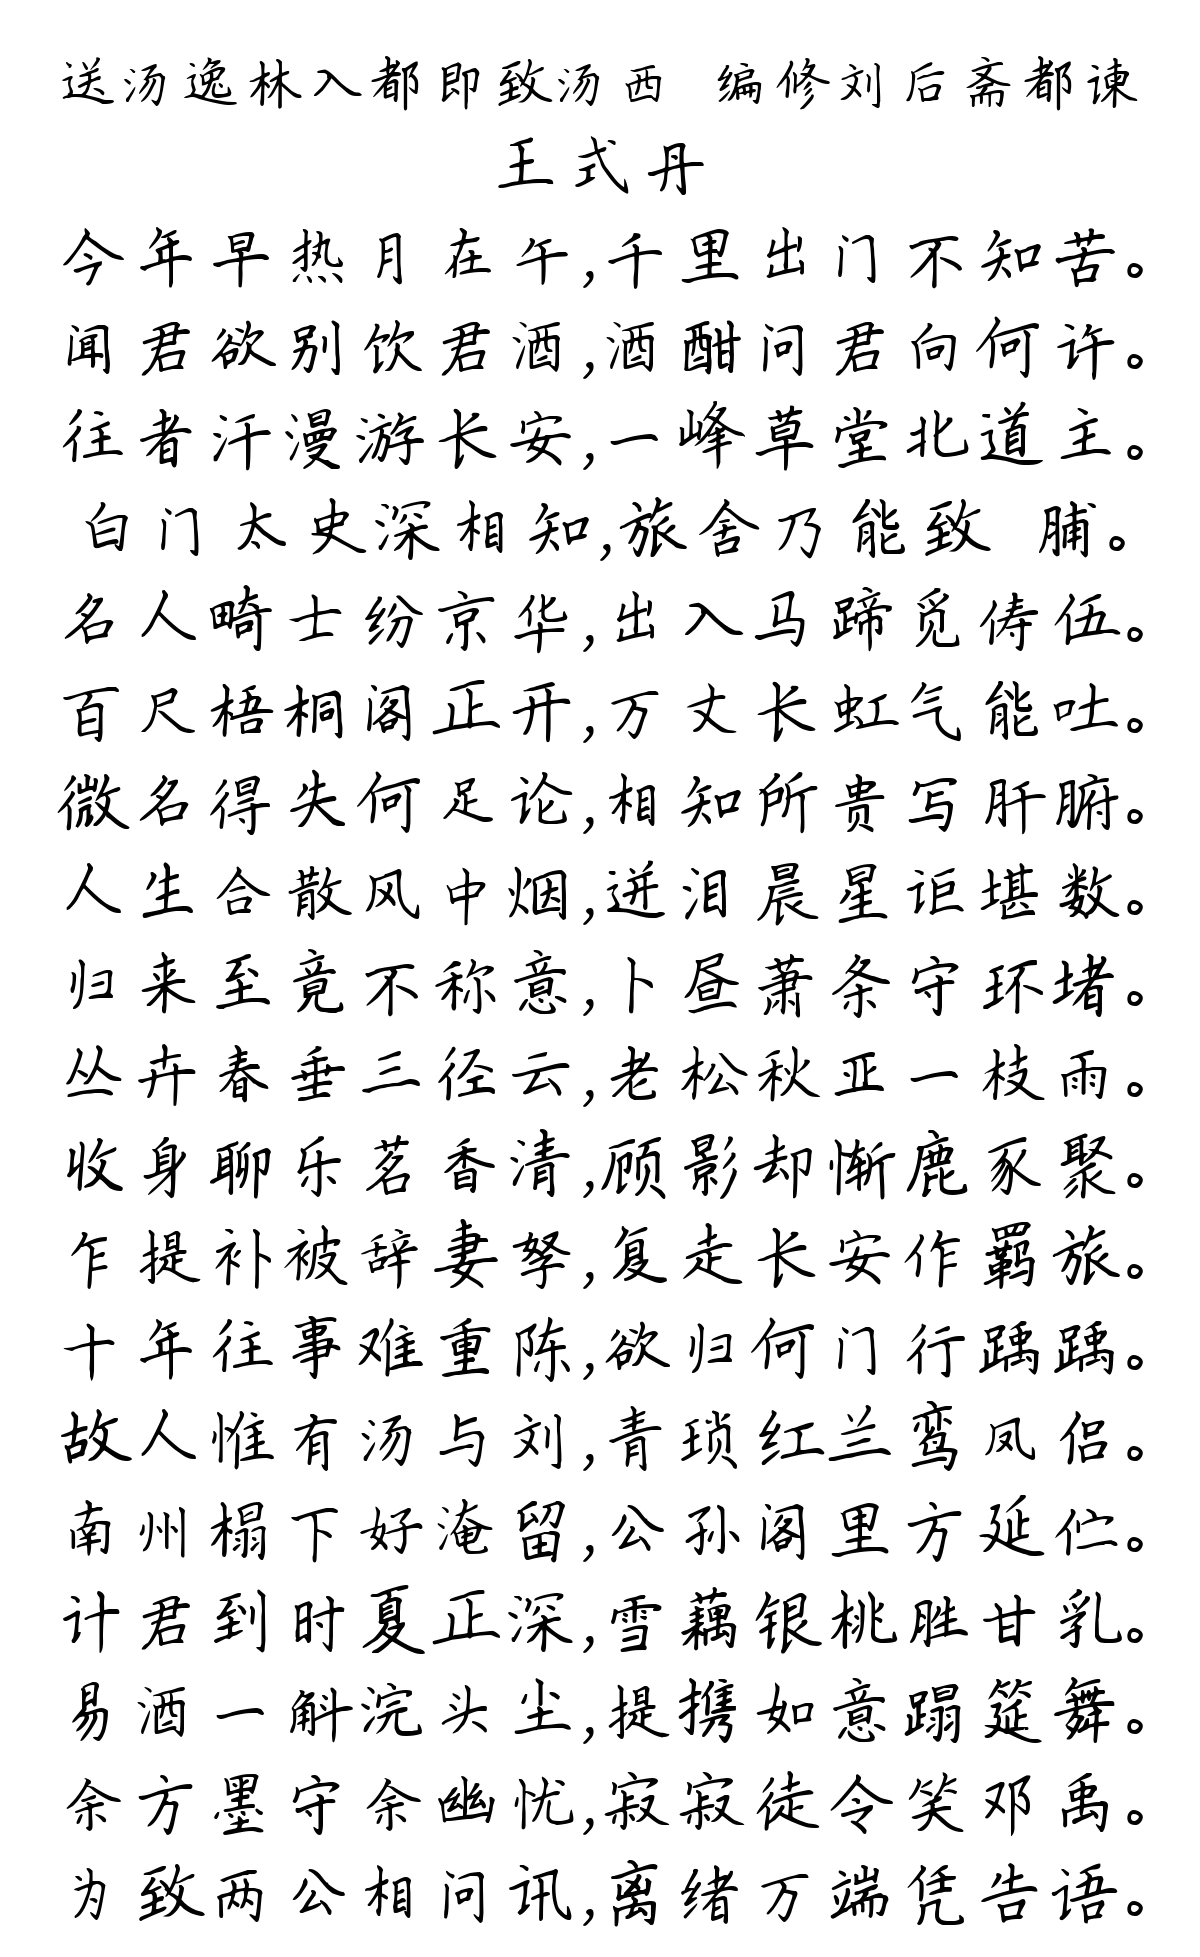 送汤逸林入都即致汤西 编修刘后斋都谏
王式丹
今年早热月在午,千里出门不知苦。
闻君欲别饮君酒,酒酣问君向何许。
往者汗漫游长安,一峰草堂北道主。
白门太史深相知,旅舍乃能致 脯。
名人畸士纷京华,出入马蹄觅俦伍。
百尺梧桐阁正开,万丈长虹气能吐。
微名得失何足论,相知所贵写肝腑。
人生合散风中烟,迸泪晨星讵堪数。
归来至竟不称意,卜昼萧条守环堵。
丛卉春垂三径云,老松秋亚一枝雨。
收身聊乐茗香清,顾影却惭鹿豕聚。
乍提补被辞妻孥,复走长安作羁旅。
十年往事难重陈,欲归何门行踽踽。
故人惟有汤与刘,青琐红兰鸾凤侣。
南州榻下好淹留,公孙阁里方延伫。
计君到时夏正深,雪藕银桃胜甘乳。
易酒一斛浣头尘,提携如意蹋筵舞。
余方墨守余幽忧,寂寂徒令笑邓禹。
为致两公相问讯,离绪万端凭告语。